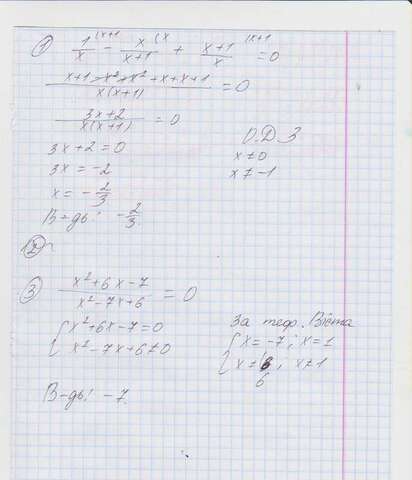 ① 1/x |x+1 - x/(x+1) |x + (x+1)/x |x+1 = 0
(x+1 - x² + x² + x + x + 1)/(x(x+1)) = 0
(3x+2)/(x(x+1)) = 0
3x+2=0
3x = -2
x = -2/3
В-дь: -2/3.
О.Д.З
x ≠ 0
x ≠ -1
②
③ (x²+6x-7)/(x²-7x+6) = 0
{x²+6x-7=0
x²-7x+6≠0
За теор. Вієта
{x = -7; x=1
x ≠ 6; x≠1
6
В-дь: -7.